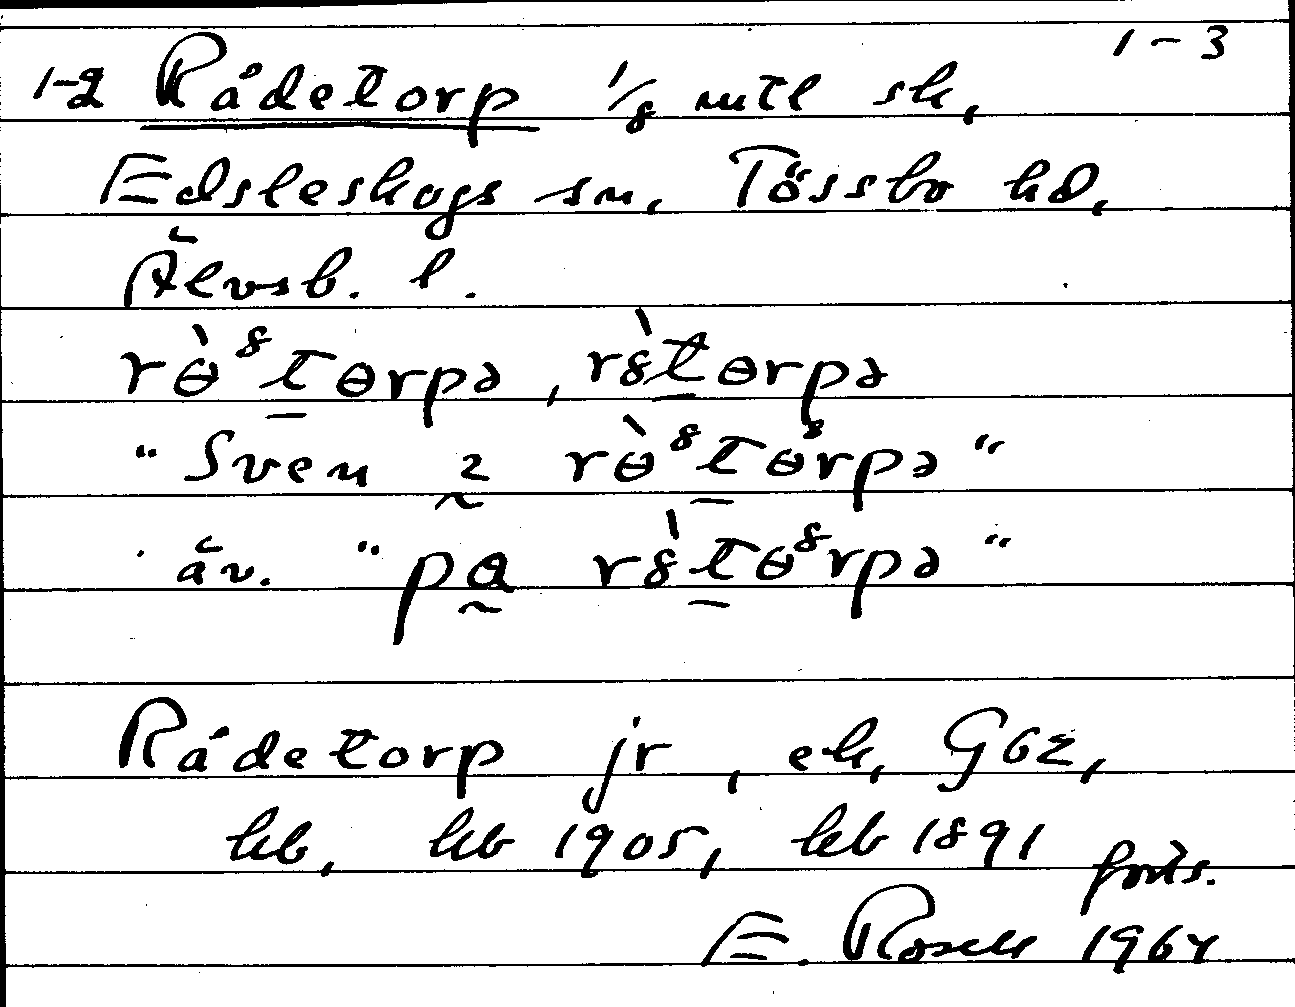 1-3
1-2 Rådetorp 1/8 mtl sk,
Edsleskogs sn, Tössbo hd,
Älvsb. l.
rɵ̀⁸tɵrpə, rètɵrpə
"Sven i rɵ̀⁸tɵrpə"
äv. "pa r8̀tɵ⁸rpə"
Rådetorp jr, ek, GbZ,
kb, kb 1905, kb 1891 forts.
E. Rosell 1964